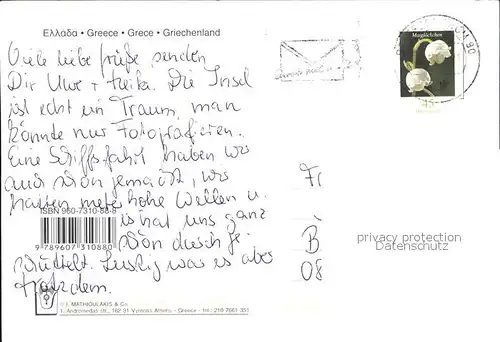 Ελλάδα • Greece • Grece • Griechenland
Viele liebe Grüße senden
Dir Uwe + Heike. Die Insel
ist echt ein Traum, man
könnte nur Fotografieren.
Eine Schiffsfahrt haben wir
auch schon gemacht, wir
hatten meter hohe Wellen u.
ISBN 960-7310-88-8
es hat uns ganz
schön durch ge-
9 789607 310880
schüttelt. Lustig war es aber
trotzdem.
© I. MATHIOULAKIS & Co.
1, Andromedas str., 162 31 Vyronas Athens - Greece - tel.: 210 7661 351
Maiglöckchen
45
90
B
08
privacy protection
Datenschutz